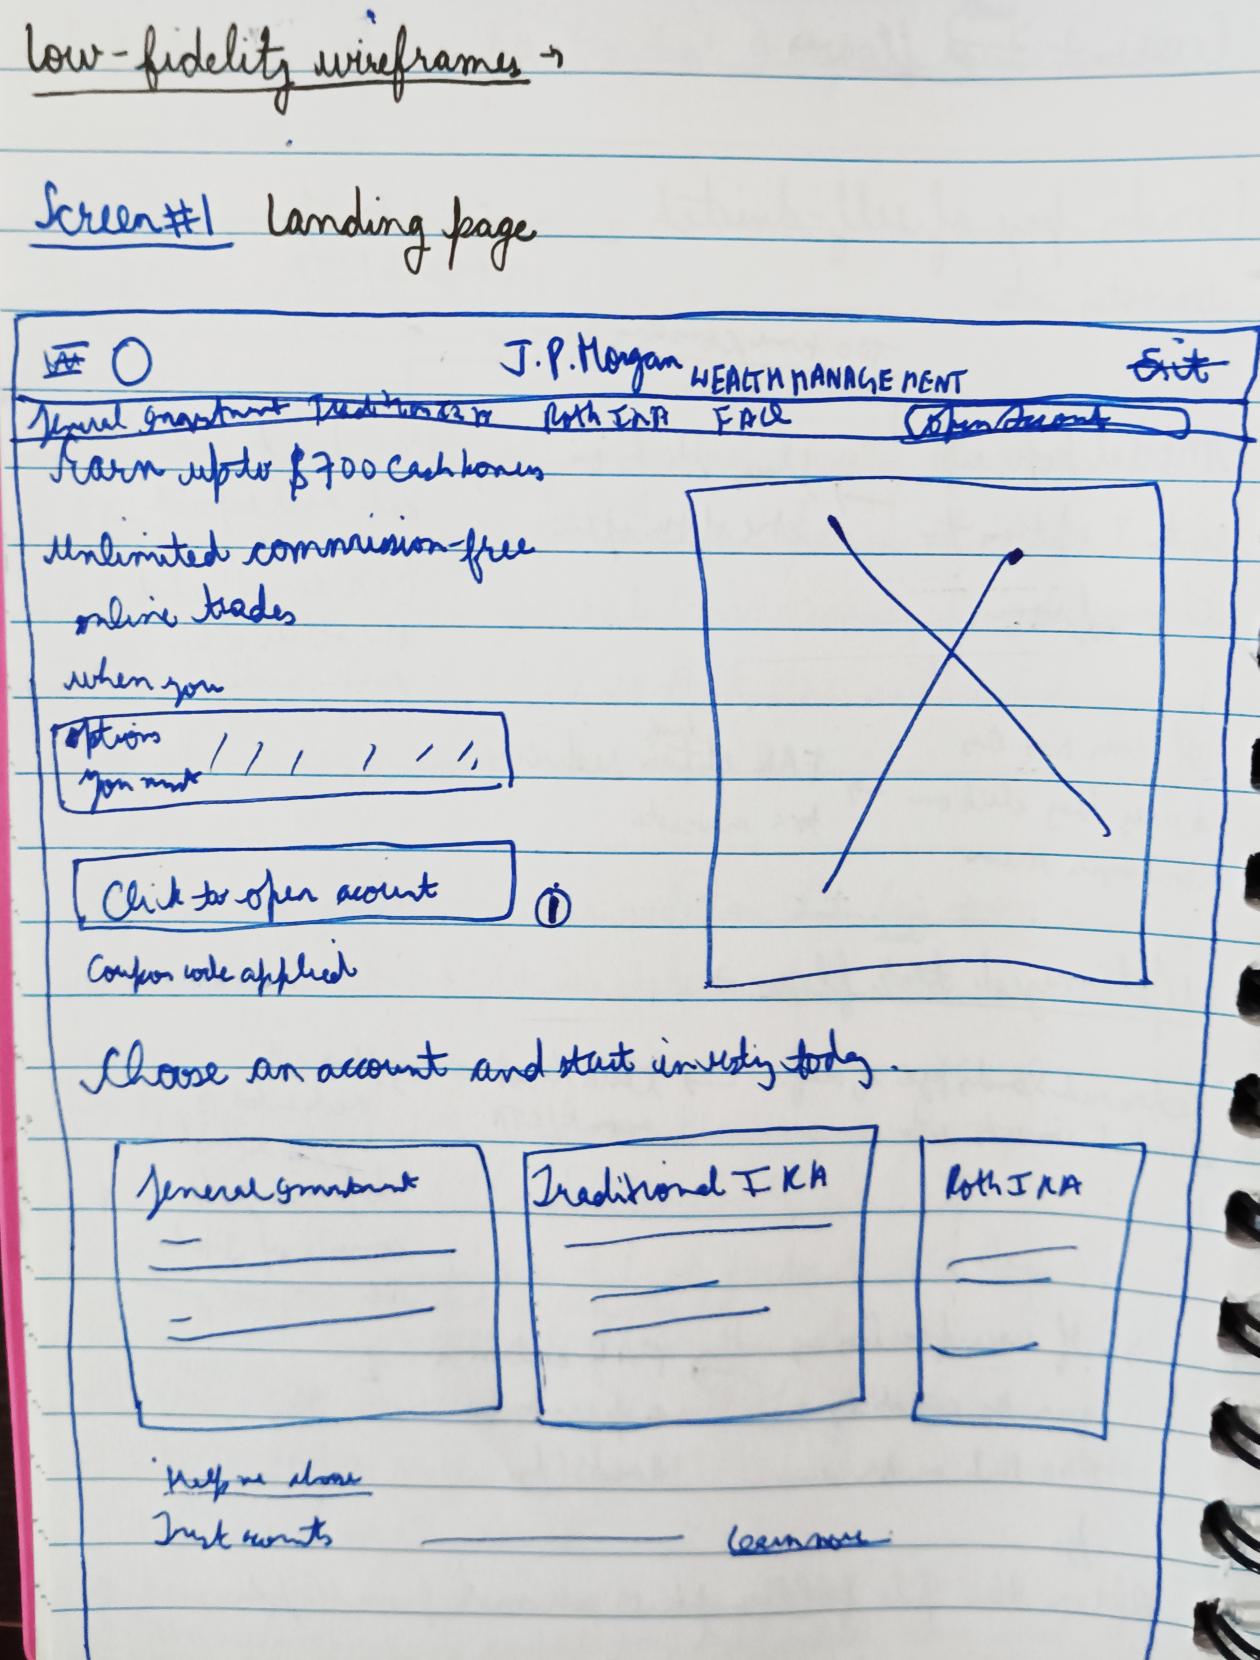 Low-fidelity wireframes →
Screen #1 Landing page
J.P. Morgan WEALTH MANAGEMENT Exit
General Investment Traditional IRA Roth IRA FAQ Open Account
Earn upto $700 cash bonus
Unlimited commission-free
online trades
when you
options
you must
Click to open acount
i
Coupon code applied
Choose an account and start investig today.
General Investment Traditional IRA Roth IRA
Help me choose
Trust accounts Learn more